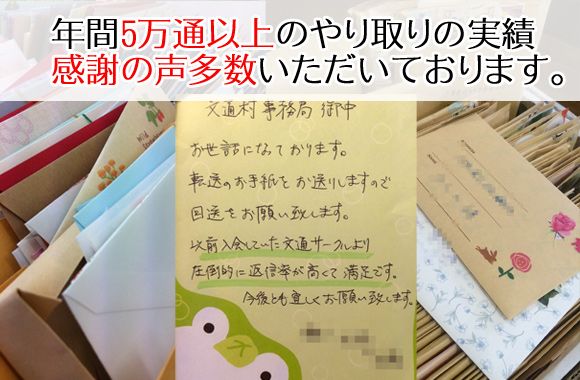 年間5万通以上のやり取りの実績
感謝の声多数いただいております。
文通村事務局御中
お世話になっております。
転送のお手紙をお送りしますので
回送をお願い致します。
以前入会していた文通サークルより
圧倒的に返信率が高くて満足です。
今後とも宜しくお願い致します。